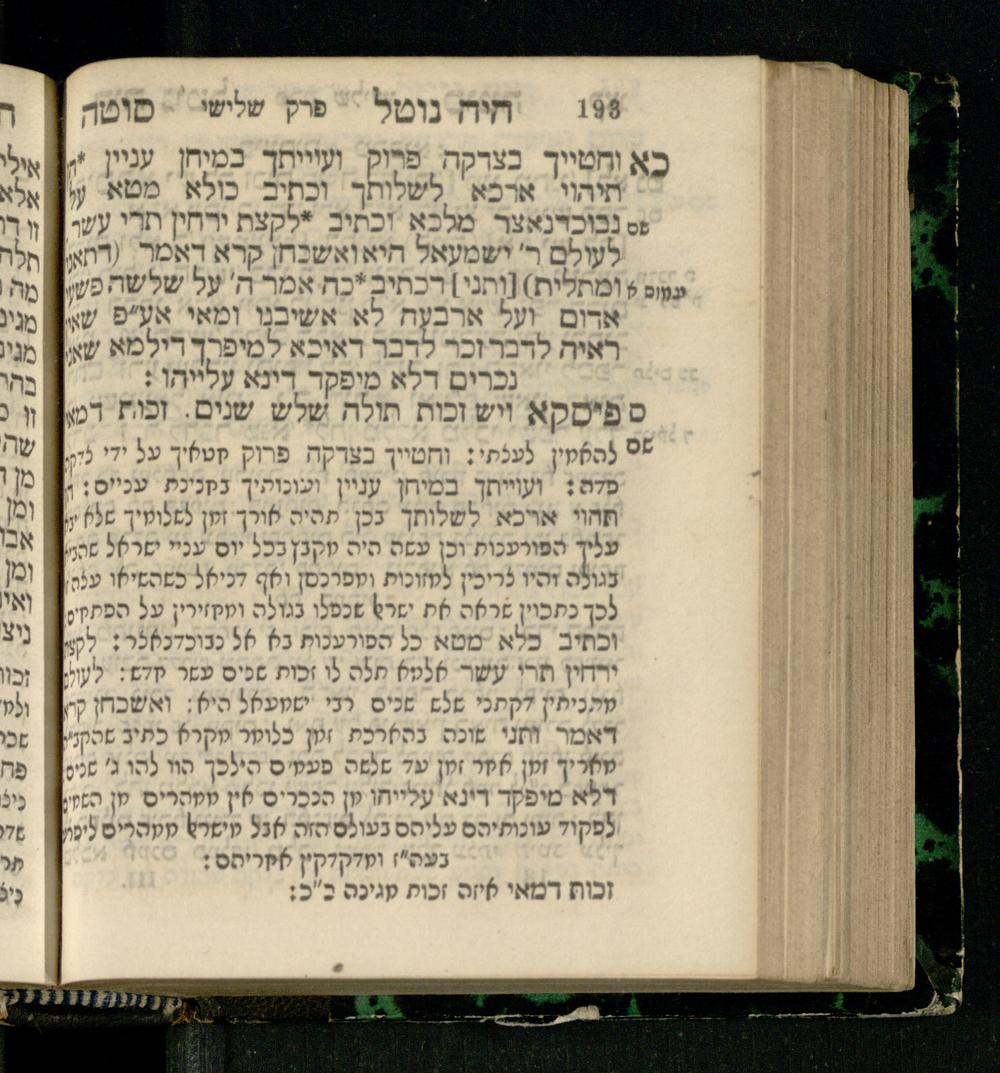 193 היה נוטל פרק שלישי סוטה
כא וחטייך בצדקה פרוק ועוייתך במיחן עניין *הן
תיהוי ארכא לשלותך וכתיב כולא מטא על
שם נבוכדנאצר מלכא וכתיב *לקצת ירחין תרי עשר
לעולם ר' ישמעאל היא ואשכחן קרא דאמר (דתאני
עמוס א ומתלית) [ותני] דכתיב *כה אמר ה' על שלשה פשעי
אדום ועל ארבעה לא אשיבנו ומאי אע"פ שאין
ראיה לדבר זכר לדבר דאיכא למיפרך דילמא שאני
נכרים דלא מיפקד דינא עלייהו :
ס פיסקא ויש זכות תולה שלש שנים. זכות דמאי
שם
להאמין לעלתי : וחטייך בצדקה פרוק חטאיך על ידי לדקה
פדה : ועוייתך במיחן עניין ועונותיך בחנינת עניים :
תהוי ארכא לשלותך בכן תהיה אורך זמן לשלומיך שלא יבא
עליך הפורענות וכן עשה היה מקבץ בכל יום עניי ישראל שהביא
בגולה והיו צריכין למזונות ומפרנסן ואף דניאל כשהשיאו עלה
לכך נתכוין שראה את ישראל שנפלו בגולה ומחזירין על הפתחים
וכתיב כלא מטא כל הפורענות בא אל נבוכדנאצר : לקצת
ירחין תרי עשר אלמא תלה לו זכות שנים עשר חדש : לעולם
מתניתין דקתני שלש שנים רבי ישמעאל היא : ואשכחן קרא
דאמר ותני שונה בהארכת זמן כלומר מקרא כתיב שהקב"ה
מאריך זמן אחר זמן עד שלשה פעמים הילכך הוו להו ג' שנים
דלא מיפקד דינא עלייהו מן הנכרים אין ממהרים מן השמים
לפקוד עונותיהם עליהם בעולם הזה אבל מישראל ממהרים ליפרע
בעה"ז ומדקדקין אחריהם :
זכות דמאי איזה זכות מגינה כ"כ :